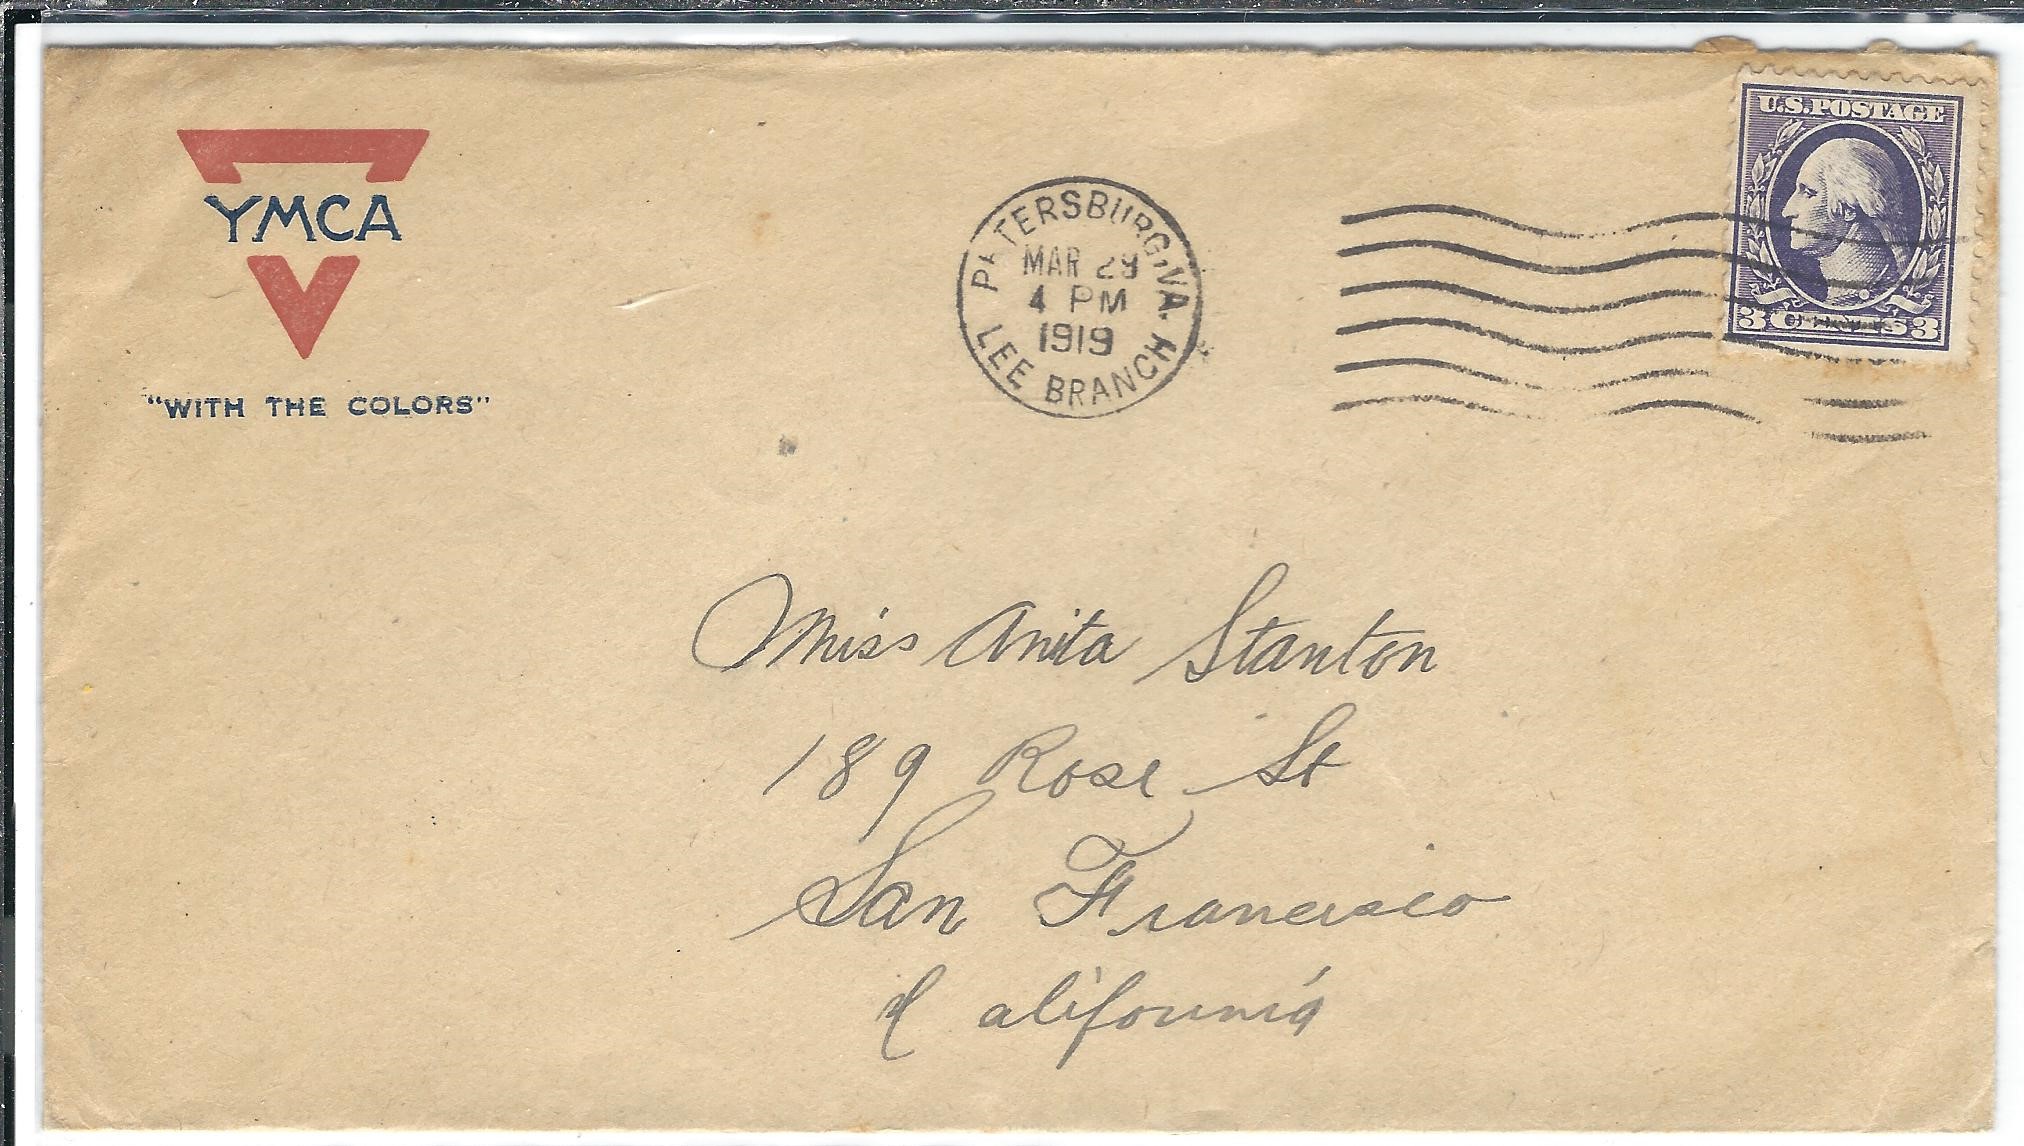 YMCA
"WITH THE COLORS"
PETERSBURG, VA.
MAR 29
4 PM
1919
LEE BRANCH
U.S. POSTAGE
3 CENTS 3
Miss Anita Stanton
189 Rose St
San Francisco
California